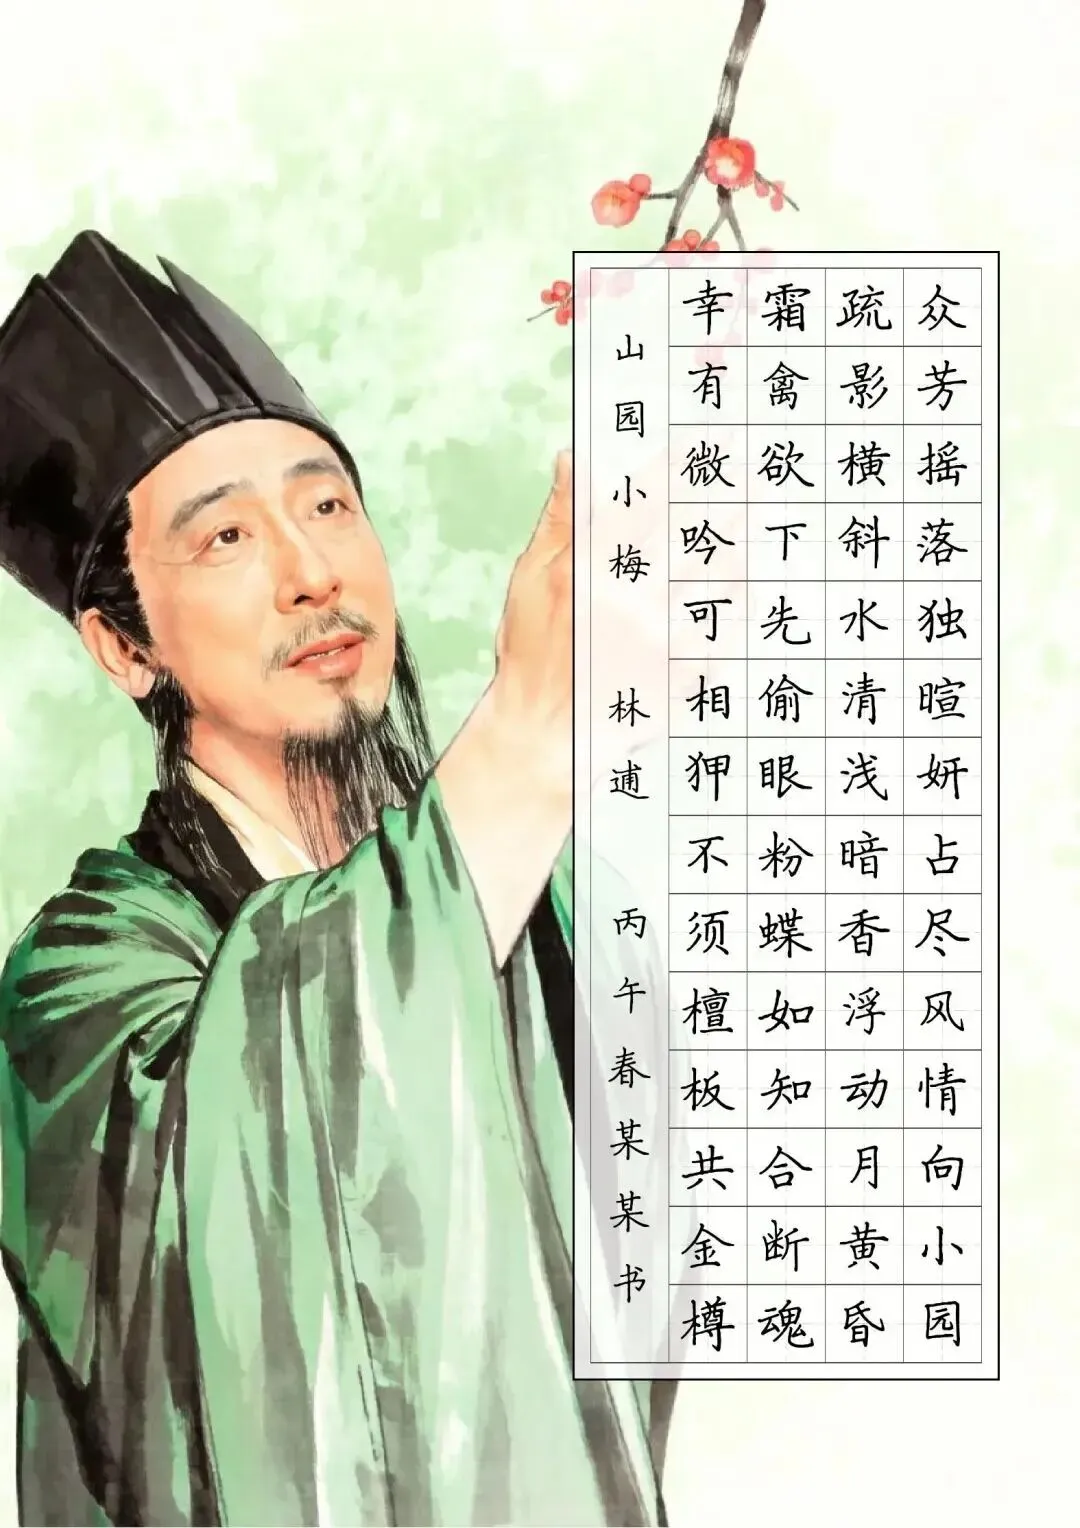 众芳摇落独暄妍占尽风情向小园
疏影横斜水清浅暗香浮动月黄昏
霜禽欲下先偷眼粉蝶如知合断魂
幸有微吟可相狎不须檀板共金樽
山园小梅 林逋 丙午春某某书